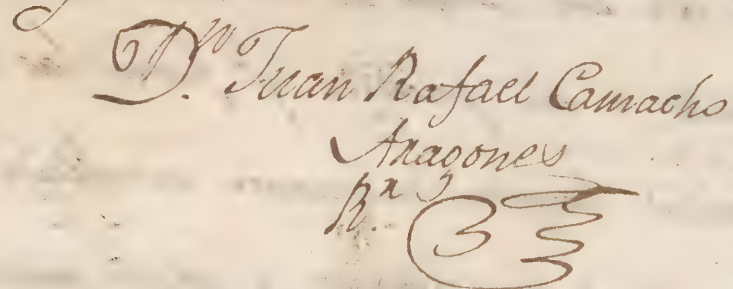 D.ⁿ Juan Rafael Camacho
Aragones
R.ⁿ